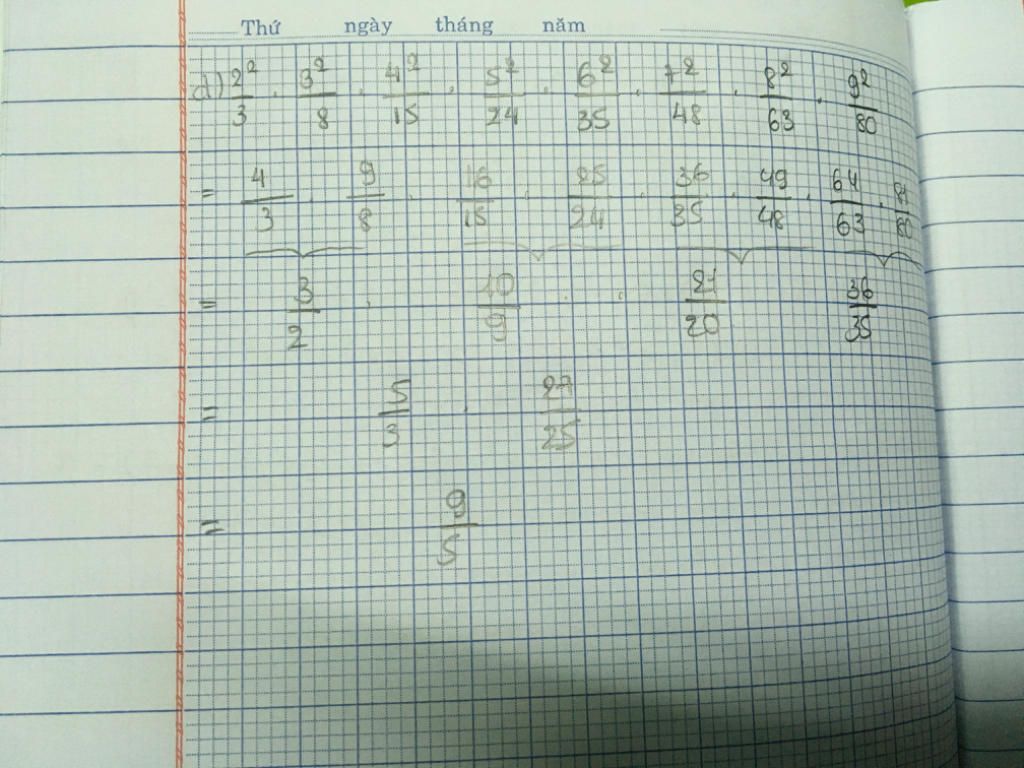 Thứ ngày tháng năm
d) 2²/3 . 3²/8 . 4²/15 . 5²/24 . 6²/35 . 7²/48 . 8²/63 . 9²/80
= 4/3 . 9/8 . 16/15 . 25/24 . 36/35 . 49/48 . 64/63 . 81/80
= 3/2 . 10/9 . 21/20 36/35
= 5/3 . 27/25
= 9/5